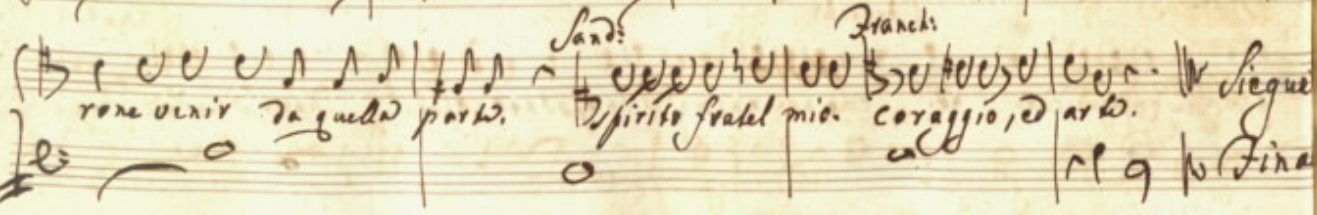 Sand: Franch:
rone venir da quella parte. Spirito fratel mio. coraggio, ed arte. Siegue
Fina